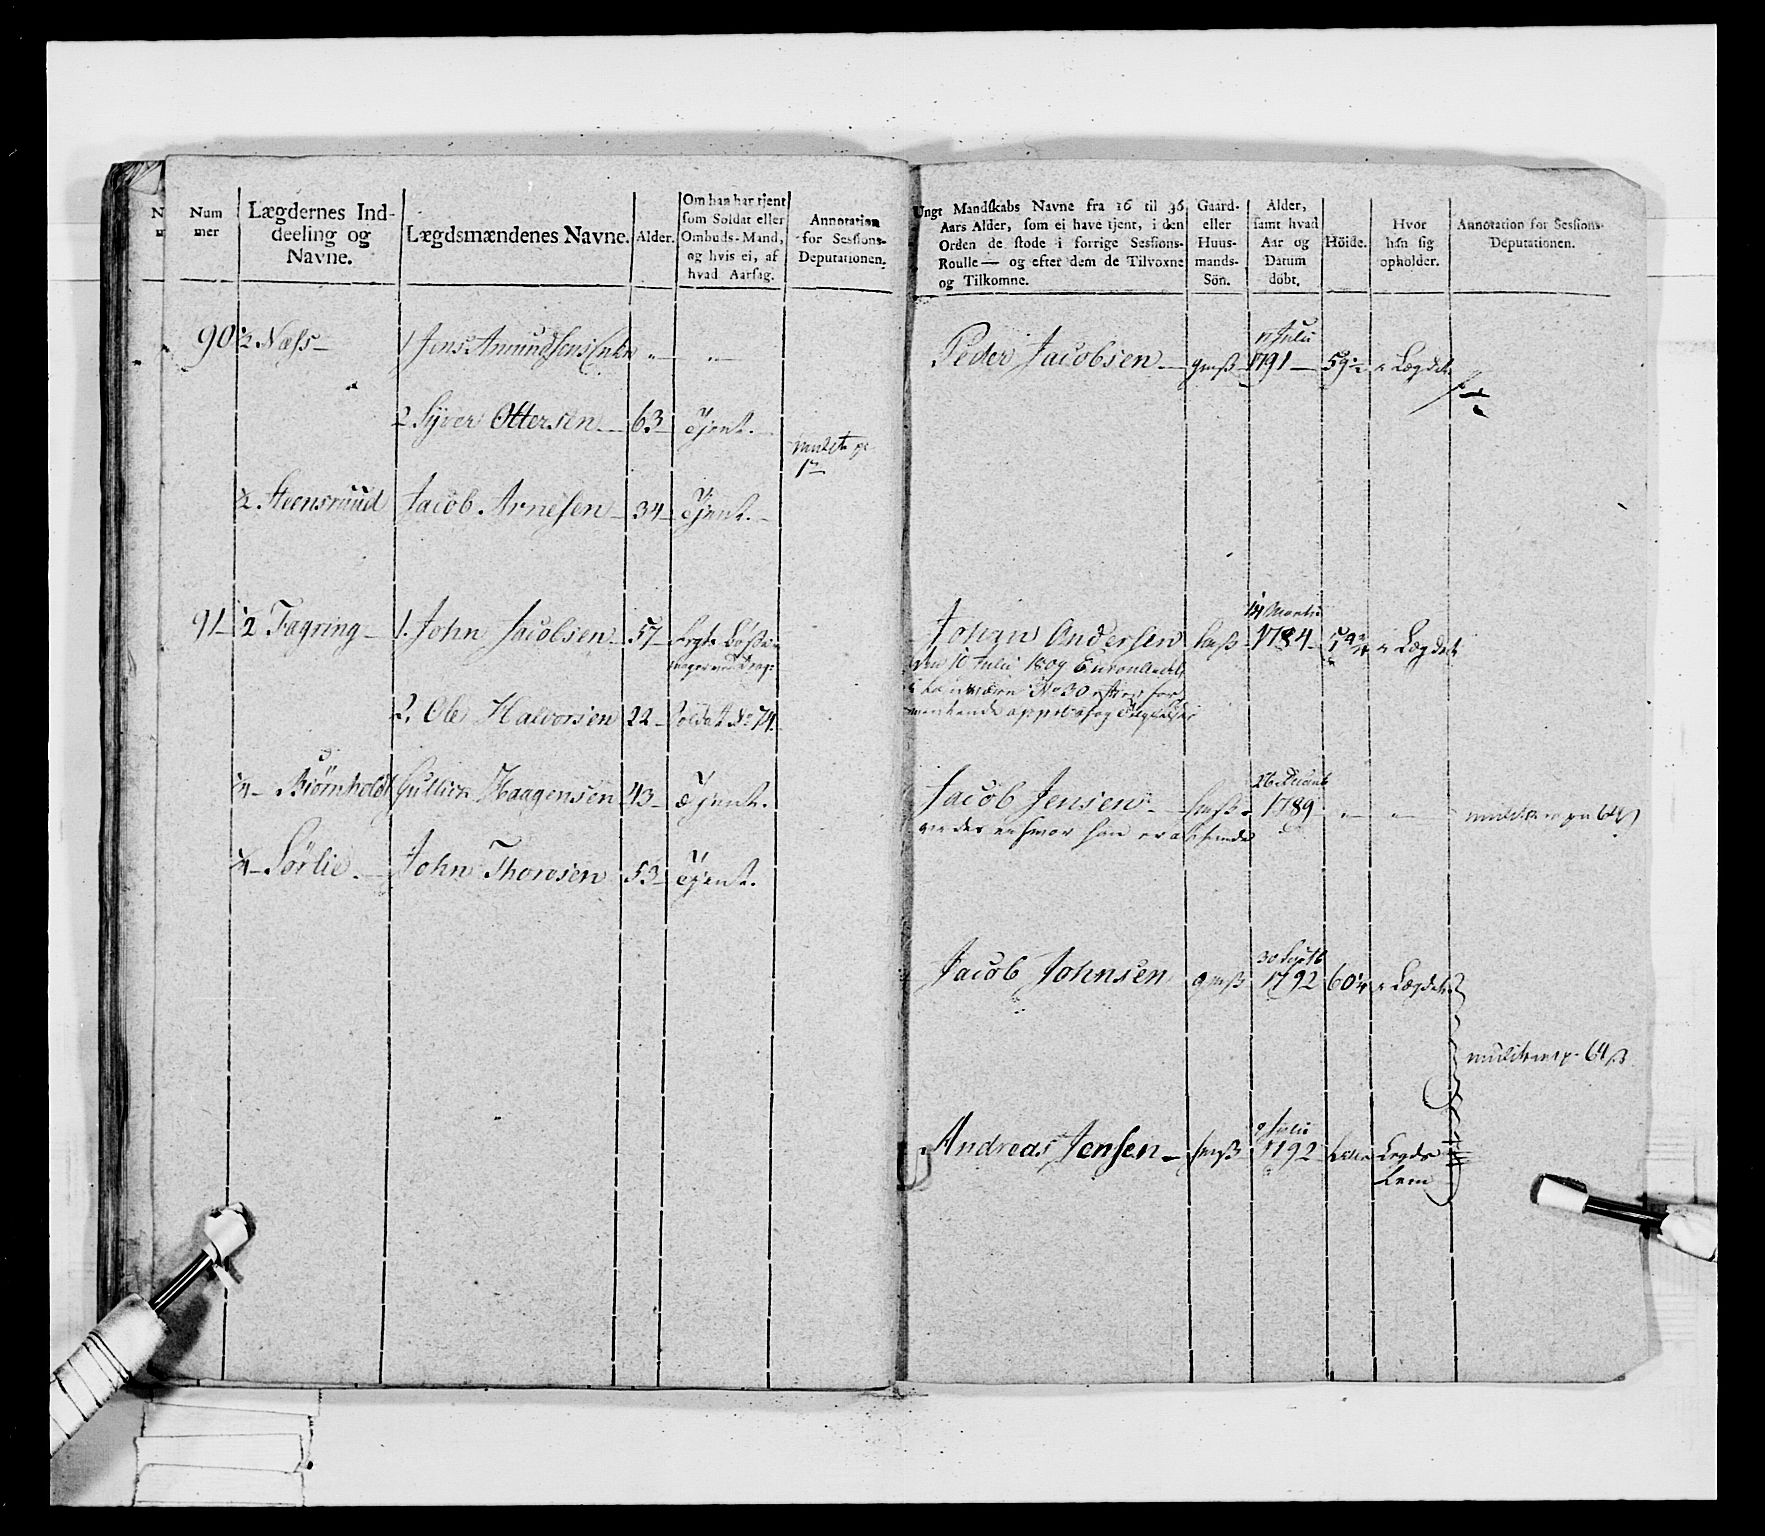 Num
mer
Lægdernes Ind-
deeling og
Navne.
Lægdsmændenes Navne.
Alder.
Om han har tjent
som Soldat eller
Ombuds-Mand,
og hvis ei, af
hvad Aarsag.
Annotation
for Sessions-
Deputationen.
90 ½ Næss — 1 Jens Amundsens Enke " "
2 Syver Ottersen — 63 — Tjent. —
½ Steensruud Jacob Arnesen — 34 — Tjent. —
91 — ½ Fagring — 1. John Jacobsen — 57 —
2. Ole Halvorsen 22 — Soldat No 74.
¼ — Biørnholdt Gullich Haagensen 43 — Tjent.
¼ — Sørlie. — John Thoresen 53 — Tjent.
Ungt Mandskabs Navne fra 16 til 36
Aars Alder, som ei have tjent, i den
Orden de stode i forrige Sessions-
Roulle — og efter dem de Tilvoxne
og Tilkomne.
Gaard-
eller
Huus-
mands-
Sön.
Alder,
samt hvad
Aar og
Datum
döbt.
Höide.
Hvor
han sig
opholder.
Annotation for Sessions-
Deputationen.
Julii
Peder Jacobsen — gmß 1791 — 59½ i Lægdet
14 Martii
Johan Andersen hmß 1784 — i Lægdet
den 10 Julii 1809
No 30
Jacob Jensen — hmß 1789 — " "
30 Septb
Jacob Johnsen gmß 1792 60¼ i Lægdet
9 Julii
Andreas Jensen — hmß 1792 — Lægds
Lem